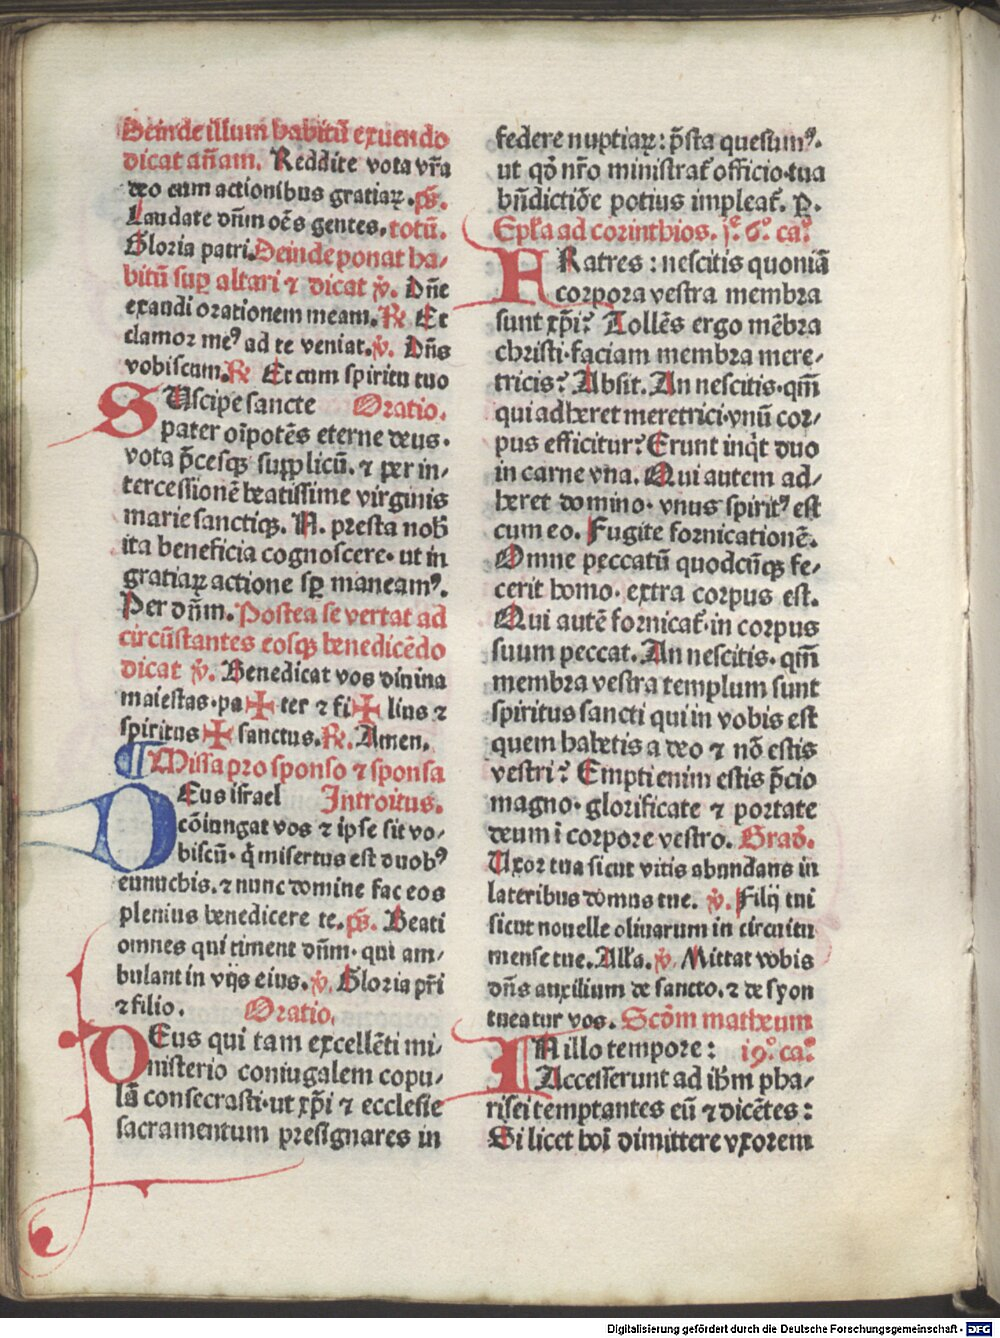 Deinde illum habitū exuendo
dicat añam. Reddite vota vr̄a
deo cum actionibus gratiaꝝ. ps̄.
Laudate dn̄m oēs gentes. totū.
Gloria patri. Deinde ponat ha-
bitū suꝑ altari ⁊ dicat ℣. Dn̄e
exaudi orationem meam. ℟ Et
clamor meꝰ ad te veniat. ℣. Dn̄s
vobiscum. ℟ Et cum spiritu tuo
SUscipe sancte Oratio.
pater oīpotēs eterne deus.
vota p̄cesqꝫ supplicū. ⁊ per in-
tercessionē beatissime virginis
marie sanctiqꝫ. N. presta nob̄
ita beneficia cognoscere. ut in
gratiaꝝ actione sꝑ maneamꝰ.
Per dn̄m. Postea se vertat ad
circūstantes eosqꝫ benedicēdo
dicat ℣. Benedicat vos divina
maiestas. pa✠ter ⁊ fi✠lius ⁊
spiritus ✠ sanctus. ℟. Amen.
¶ Missa pro sponso ⁊ sponsa
DEus israel Introitus.
cōiungat vos ⁊ ipse sit vo-
biscū. q̇ misertus est duobꝰ
eunuchis. ⁊ nunc domine fac eos
plenius benedicere te. ps̄. Beati
omnes qui timent dn̄m. qui am-
bulant in vijs eius. ℣. Gloria pr̄i
⁊ filio. Oratio.
DEus qui tam excellēti mi-
nisterio coniugalem copu-
lā consecrasti. ut xp̄i ⁊ ecclesie
sacramentum presignares in
federe nuptiaꝝ: p̄sta quesumꝰ.
ut qđ nr̄o ministrat̄ officio. tua
bn̄dictiōe potius impleat̄. P.
Ep̄ła ad corinthios. jͤ. 6°. ca°.
FRatres: nescitis quoniā
corpora vestra membra
sunt xp̄i? Tollēs ergo mēbra
christi. faciam membra mere-
tricis? Absit. An nescitis. qm̄
qui adheret meretrici. vnū cor-
pus efficitur? Erunt inq̇t duo
in carne vna. Qui autem ad-
heret domino. vnus spiritꝰ est
cum eo. Fugite fornicationē.
Omne peccatū quodcūqꝫ fe-
cerit homo. extra corpus est.
Qui autē fornicat̄. in corpus
suum peccat. An nescitis. qm̄
membra vestra templum sunt
spiritus sancti qui in vobis est
quem habetis a deo ⁊ nō estis
vestri? Empti enim estis p̄cio
magno. glorificate ⁊ portate
deum ī corpore vestro. Grad̄.
Uxor tua sicut vitis abundans in
lateribus domus tue. ℣. Filij tui
sicut nouelle oliuarum in circuitu
mense tue. Alła. ℣. Mittat vobis
dn̄s auxilium de sancto. ⁊ de syon
tueatur vos. Scd̄m matheum
IN illo tempore: 19°. ca°.
Accesserunt ad ih̄m pha-
risei temptantes eū ⁊ dicētes:
Si licet hoī dimittere vxorem
Digitalisierung gefördert durch die Deutsche Forschungsgemeinschaft - DFG